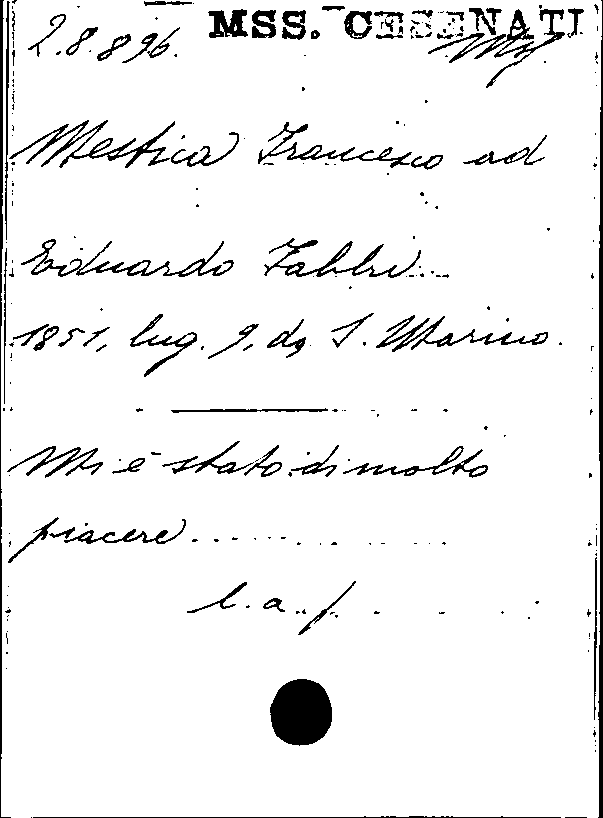 MSS. CESENATI
2.8.896. Ms
Mestica Francesco ad
Eduardo Fabbri
1851, lug. 9, da S. Marino.
Mi è stato di molto
piacere
l. a. f.